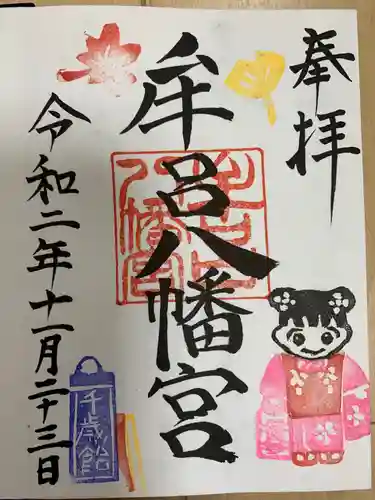 奉拝
牟呂八幡宮
令和二年十一月二十三日
千歳飴